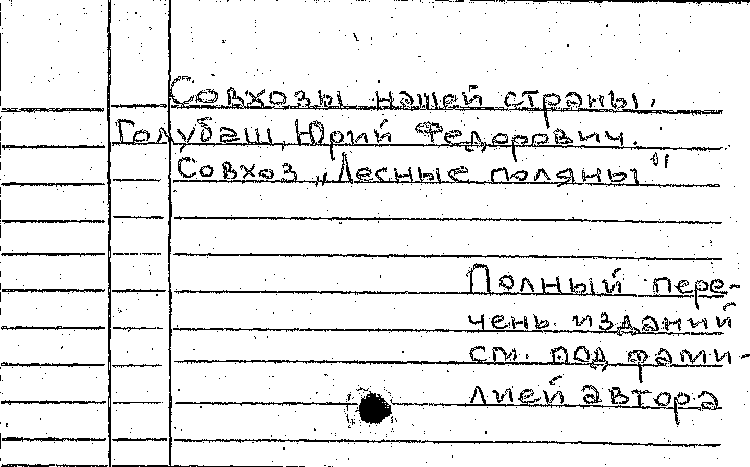 Совхозы нашей страны.
Голубаш, Юрий Федорович.
Совхоз „Лесные поляны"
Полный пере-
чень изданий
см. под фами-
лией автора